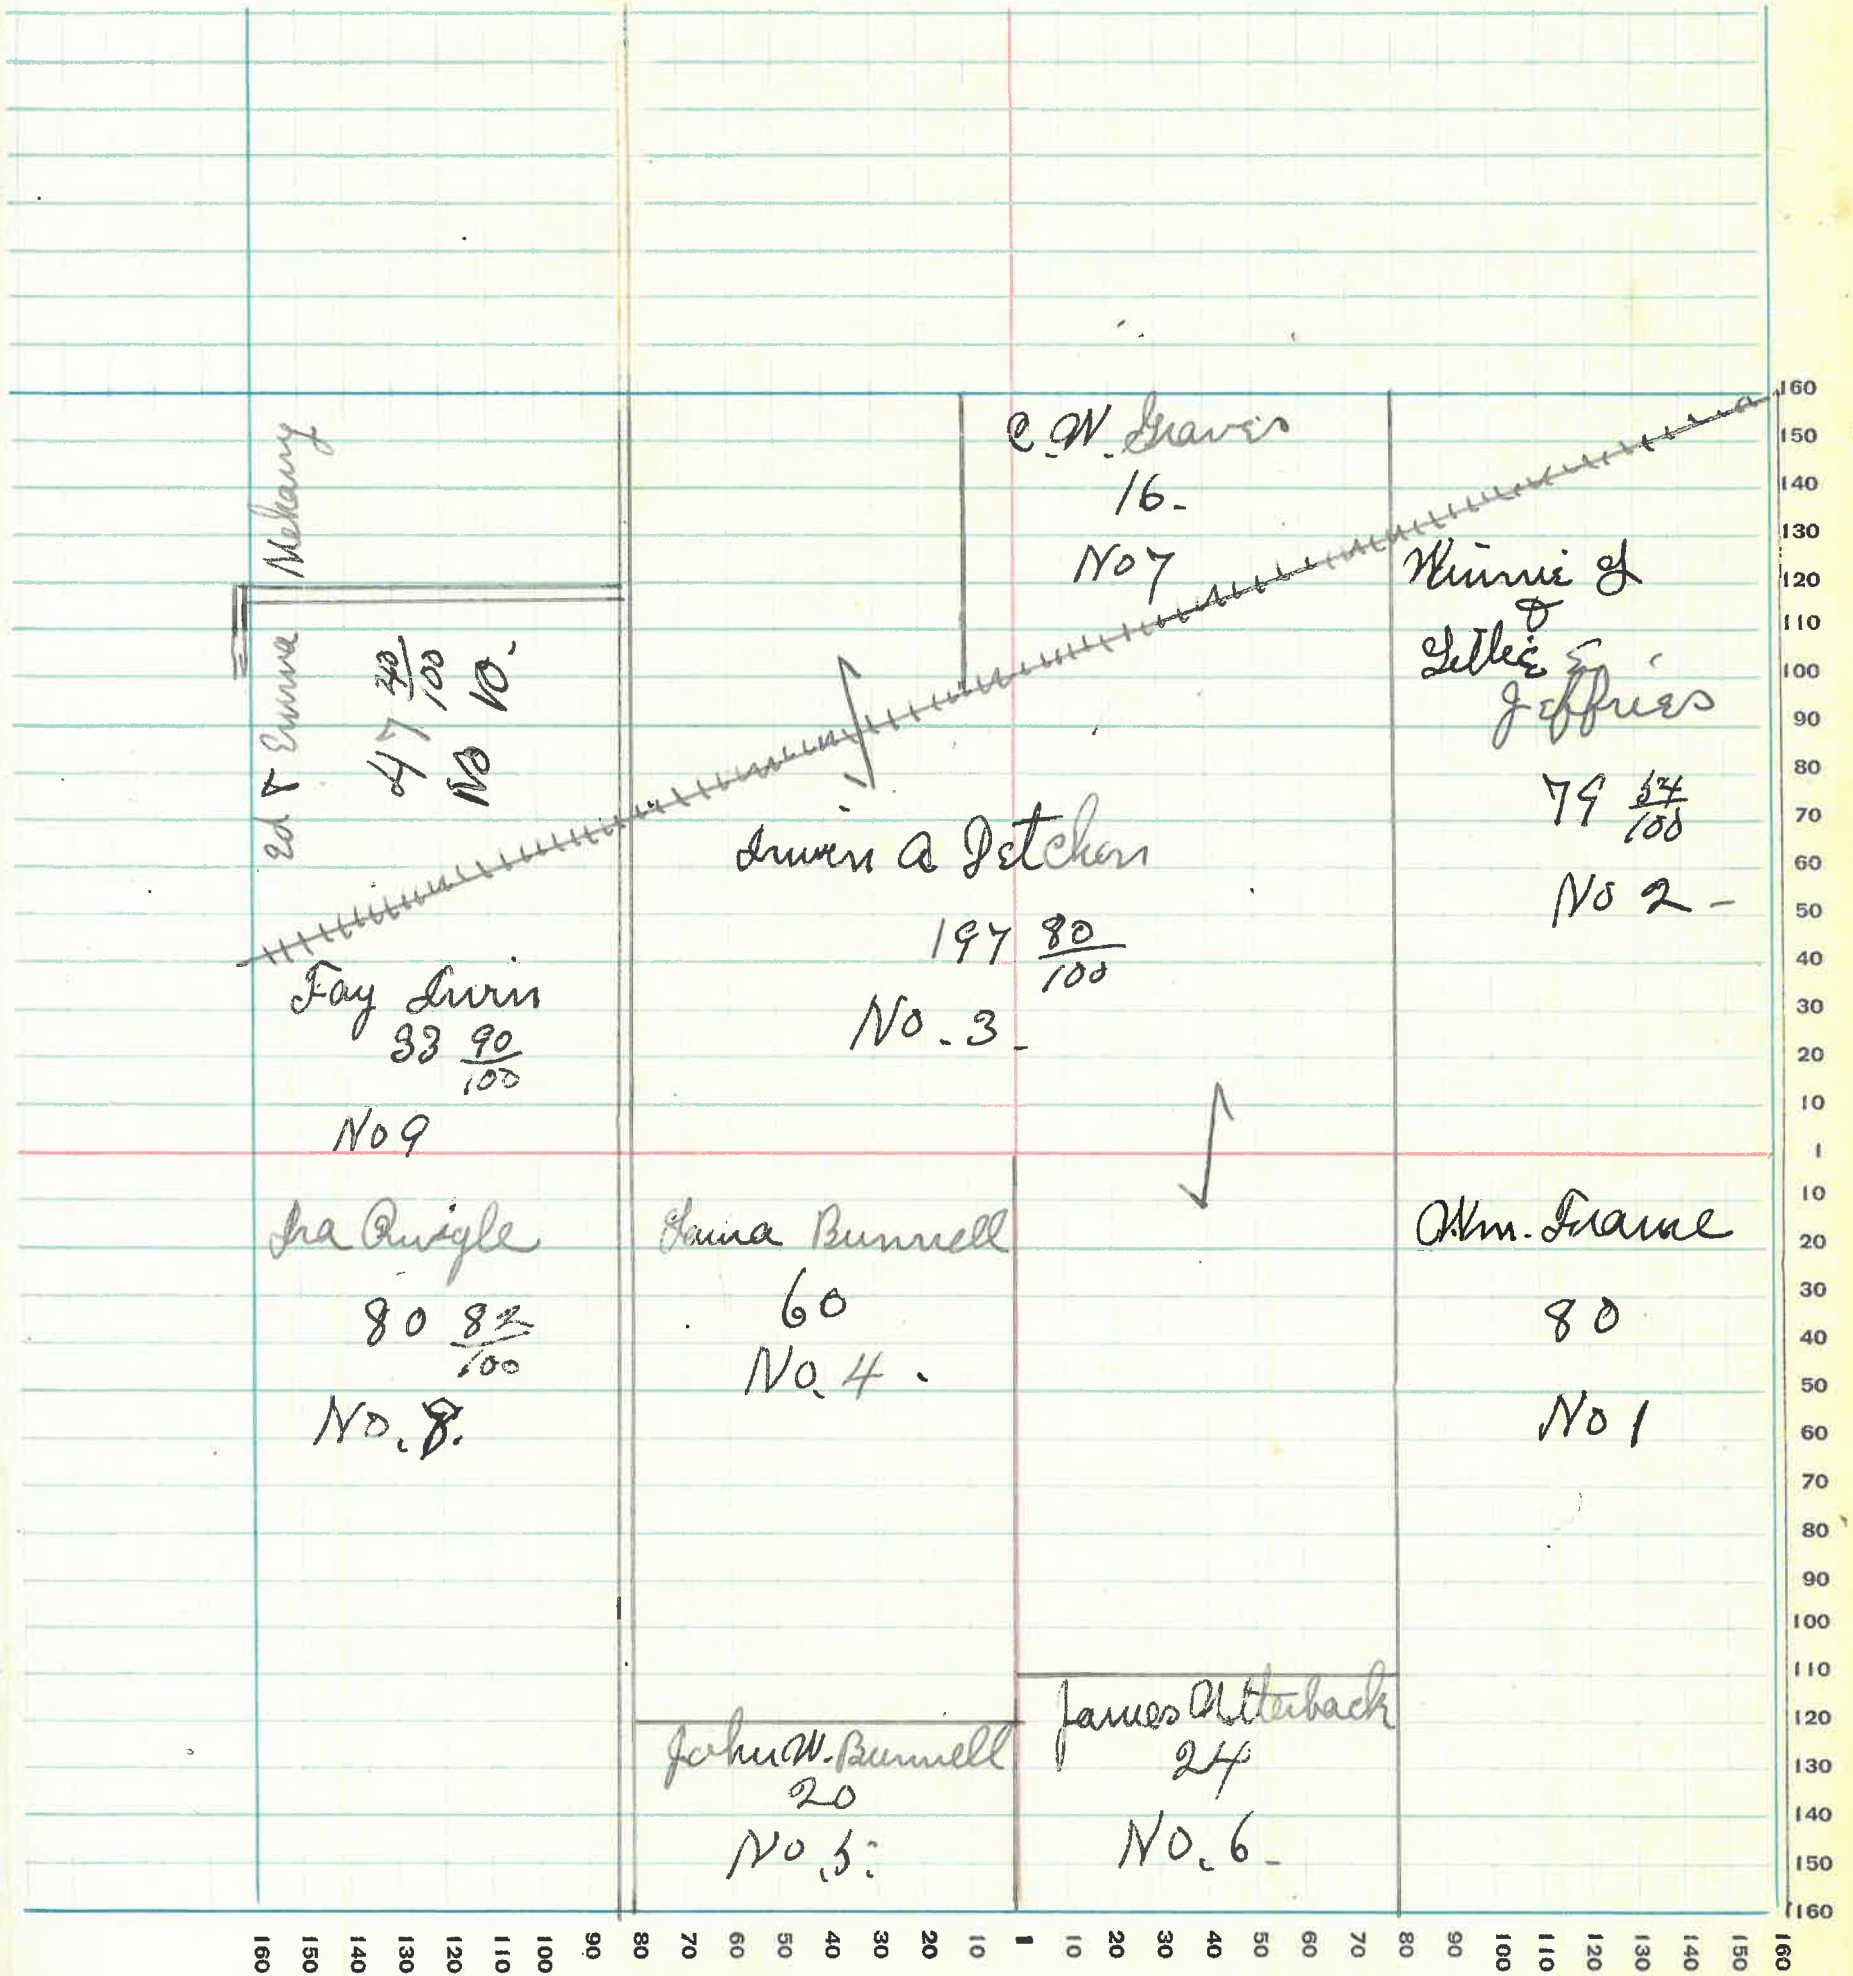 C. W. Graves
16.
No 7
Winnie J
&
Lettie E
Jeffries
79 54/100
No 2 -
Ed & Emma Mekany
47 40/100
No 10.
Irwin A Detchon
197 80/100
No. 3.
Fay Irwin
33 90/100
No 9
Ira Quigle
80 82/100
No. 8.
Bunnell
60
No. 4.
Wm. Frame
80
No 1
John W. Bunnell
20
No. 5.
James Utterback
24
No. 6.
160
150
140
130
120
110
100
90
80
70
60
50
40
30
20
10
1
10
20
30
40
50
60
70
80
90
100
110
120
130
140
150
160
160 150 140 130 120 110 100 90 80 70 60 50 40 30 20 10 1 10 20 30 40 50 60 70 80 90 100 110 120 130 140 150 160